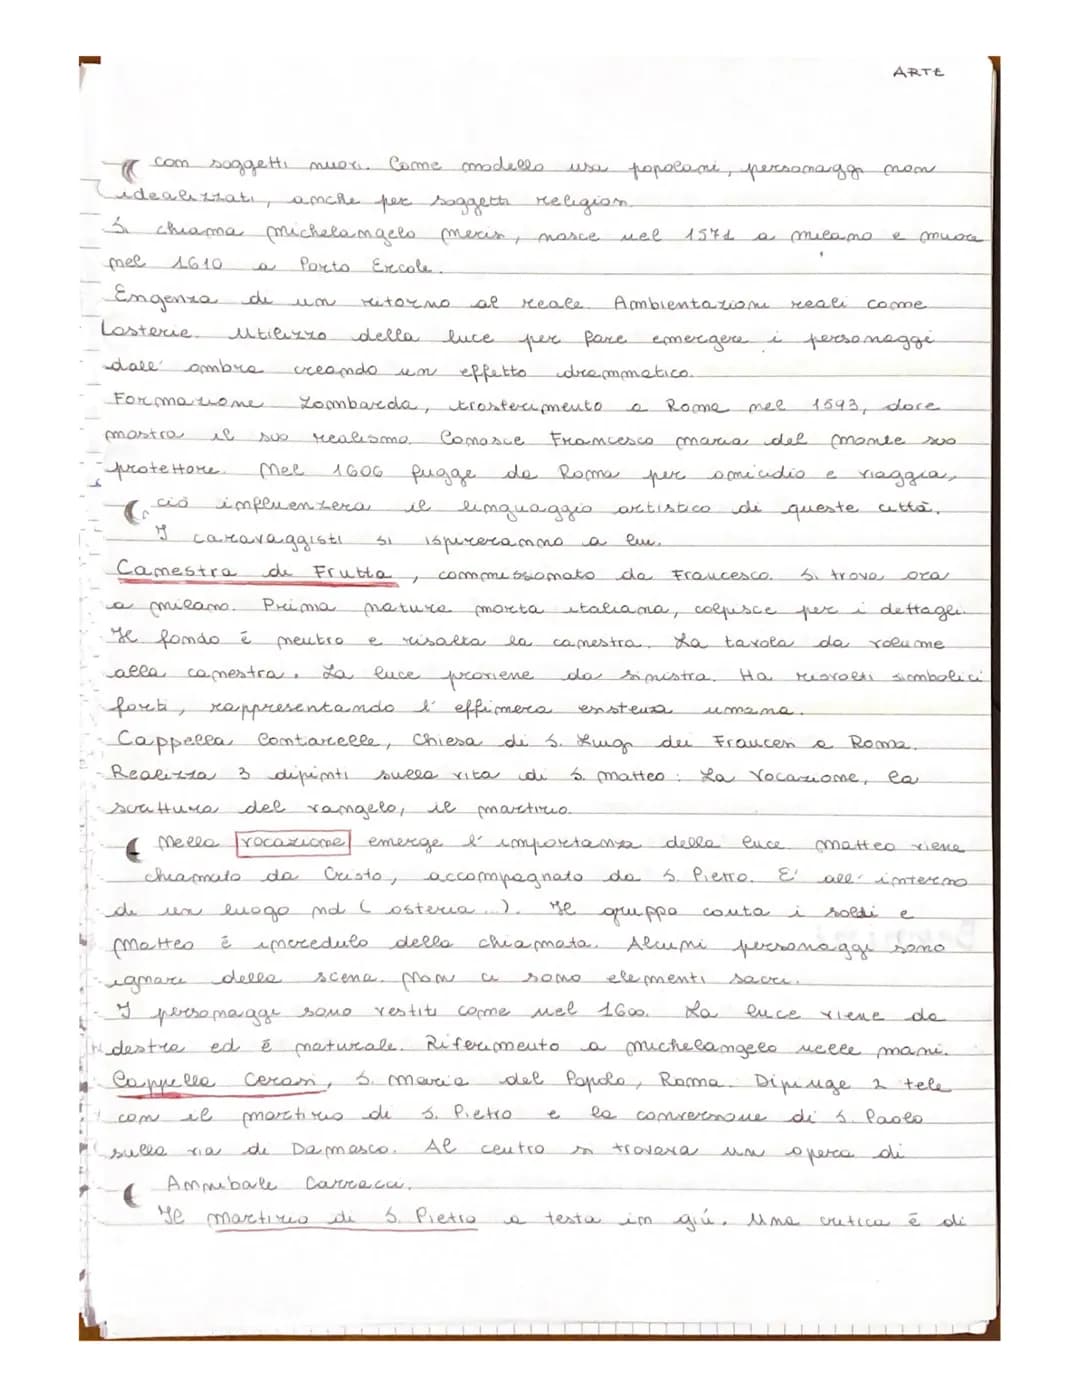 ARTE
con soggetti nuovi. Come modello usa popolani, personaggi non
idealizzati, anche per soggetti religiosi.
Si chiama Michelangelo Merisi, nasce nel 1571 a Milano e muore
nel 1610 a Porto Ercole.
Esigenza di un ritorno al reale. Ambientazioni reali come
l'osterie. Utilizzo della luce per fare emergere i personaggi
dall' ombra creando un effetto drammatico.
Formazione Lombarda, trasferimento a Roma nel 1593, dove
mostra il suo realismo. Conosce Francesco Maria del Monte suo
protettore. Nel 1606 fugge da Roma per omicidio e viaggia,
ciò influenzerà il linguaggio artistico di queste città.
I caravaggisti si ispireranno a lui.
Canestra di Frutta, commissionato da Francesco. Si trova ora
a Milano. Prima natura morta italiana, colpisce per i dettagli.
Il fondo è neutro e risalta la canestra. La tavola da volume
alla canestra. La luce proviene da sinistra. Ha risvolti simbolici
forti, rappresentando l'effimera esistenza umana.
Cappella Contarelle, Chiesa di S. Luigi dei Francesi a Roma.
Realizza 3 dipinti sulla vita di S. Matteo: La Vocazione, la
scrittura del vangelo, il martirio.
Nella vocazione emerge l'importanza della luce. Matteo viene
chiamato da Cristo, accompagnato da S. Pietro. E' all' interno
di un luogo nd (osteria...). Il gruppo conta i soldi e
Matteo è incredulo della chiamata. Alcuni personaggi sono
ignari della scena. Non ci sono elementi sacri.
I personaggi sono vestiti come nel 1600. La luce viene da
destra ed è naturale. Riferimento a Michelangelo nelle mani.
Cappella Cerasi, S. Maria del Popolo, Roma. Dipinge 2 tele
con il martirio di S. Pietro e la conversione di S. Paolo
sulla via di Damasco. Al centro si trovava un opera di
Annibale Carracci.
Il martirio di S. Pietro a testa in giù. Una critica è di